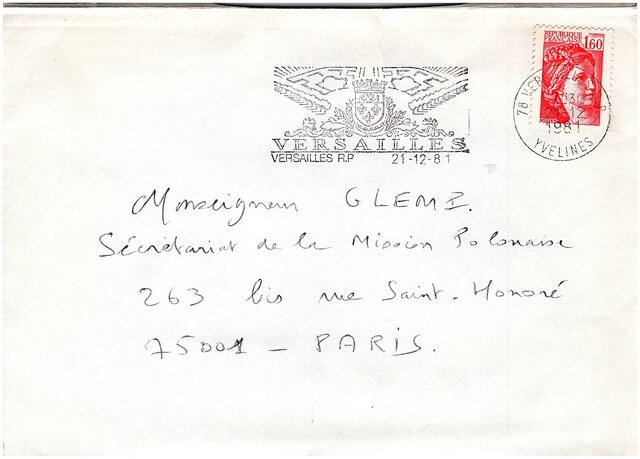 REPUBLIQUE
FRANCAISE
1,60
VERSAILLES
VERSAILLES R.P 21-12-81
1981
YVELINES
Monseigneur GLEMP.
Sécrétariat de la Mission Polonaise
263 bis rue Saint-Honoré
75001 - PARIS.